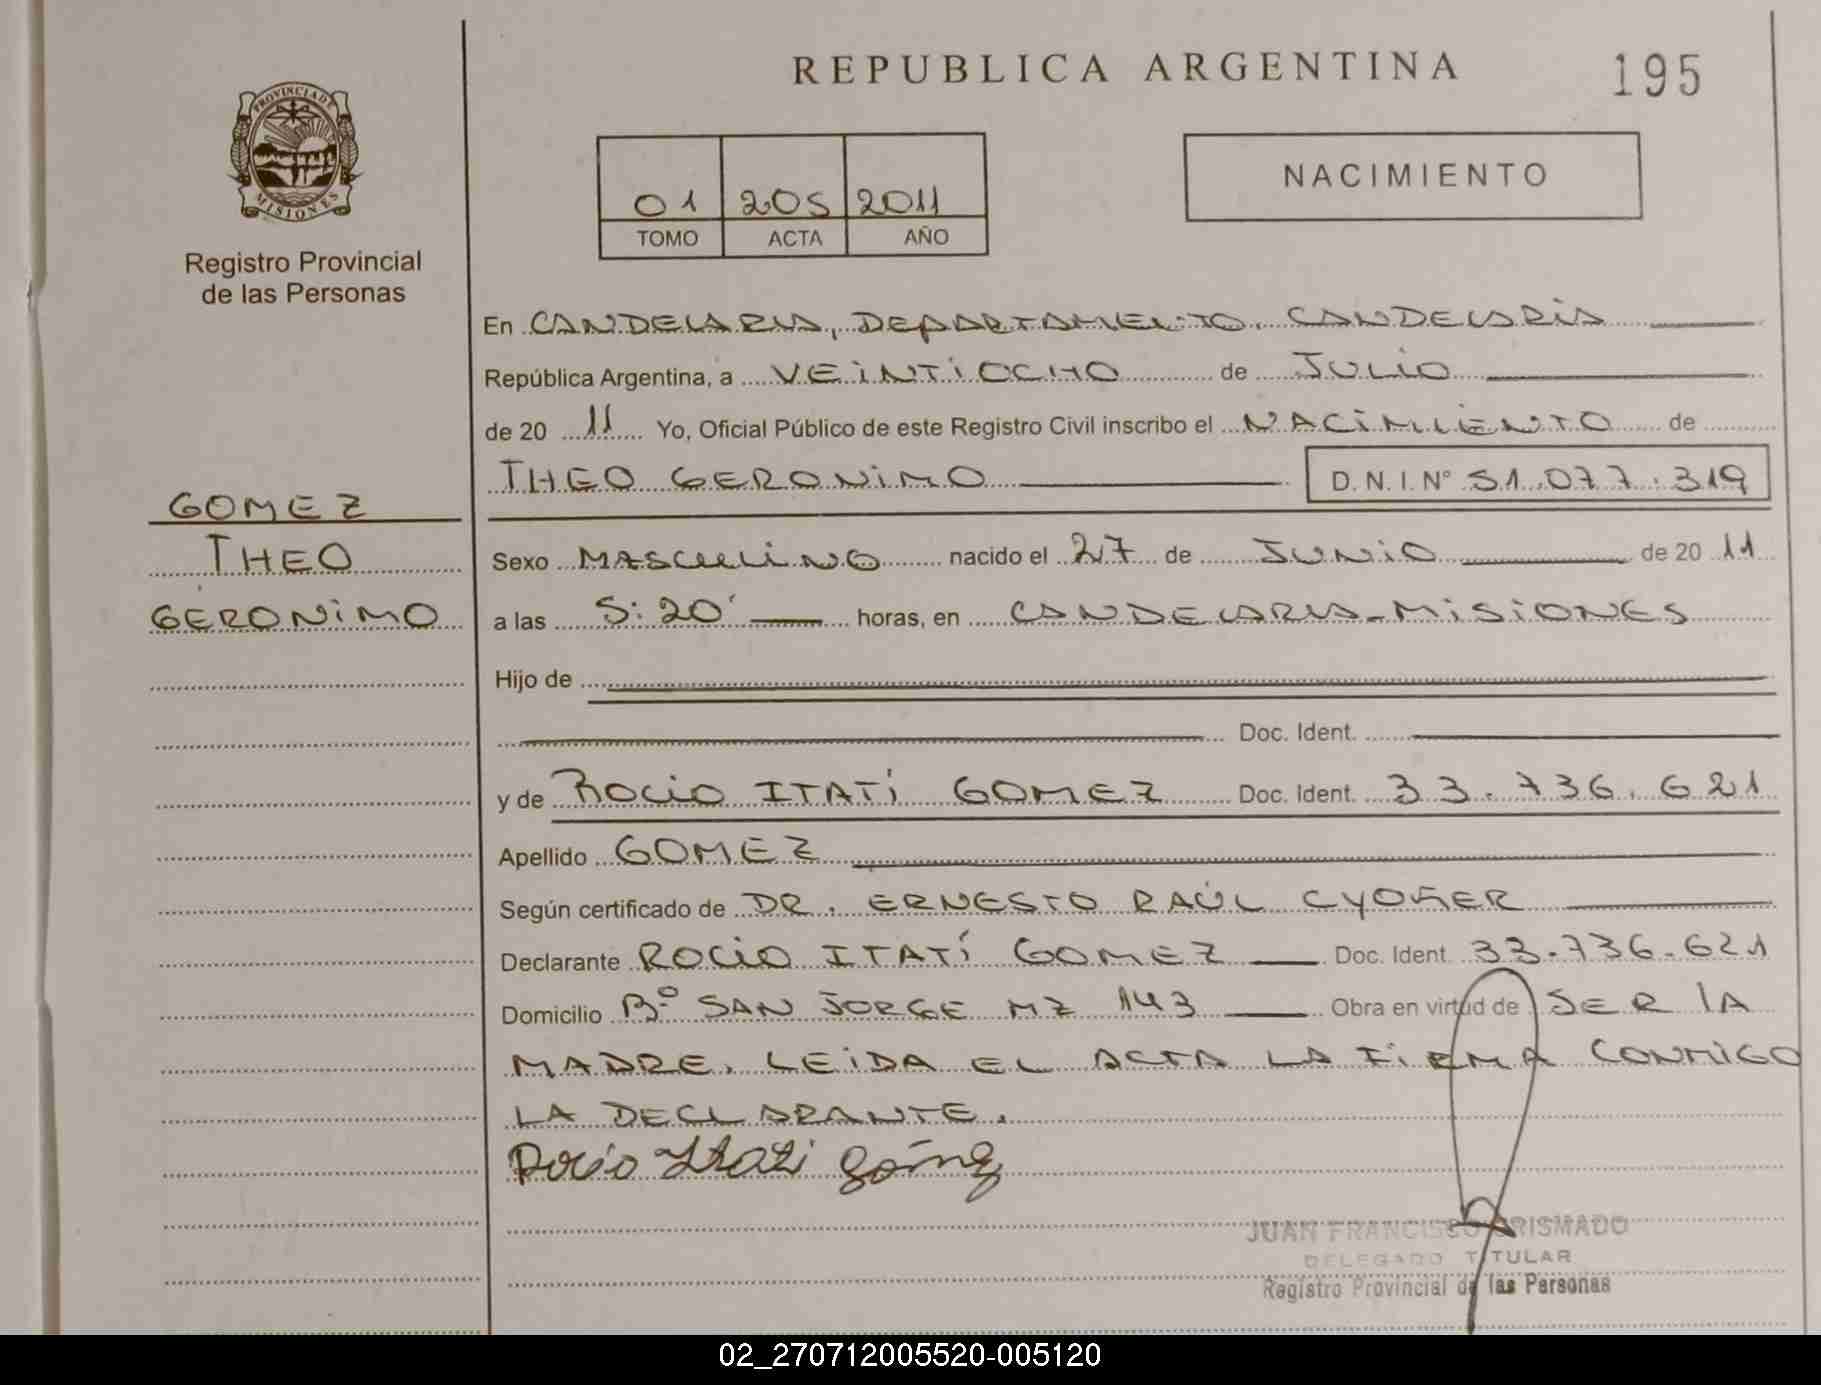 REPUBLICA ARGENTINA
195
PROVINCIA DE
MISIONES
Registro Provincial
de las Personas
01 205 2011
TOMO ACTA AÑO
NACIMIENTO
En CANDELARIA, DEPARTAMENTO, CANDELARIA
República Argentina, a VEINTIOCHO de JULIO
de 20 11 Yo, Oficial Público de este Registro Civil inscribo el NACIMIENTO de
THEO GERONIMO D.N.I. N° 51.077.319
GOMEZ
THEO
GERONIMO
Sexo MASCULINO nacido el 27 de JUNIO de 20 11
a las 5:20' horas, en CANDELARIA-MISIONES
Hijo de
Doc. Ident.
y de ROCIO ITATÍ GOMEZ Doc. Ident. 33.736.621
Apellido GOMEZ
Según certificado de DR. ERNESTO RAÚL
Declarante ROCIO ITATÍ GOMEZ Doc. Ident. 33.736.621
Domicilio B° SAN JORGE MZ 143 Obra en virtud de SER LA
MADRE. LEIDA EL ACTA LA FIRMA CONMIGO
LA DECLARANTE.
Rocio Itati Gómez
JUAN FRANCISCO CRISMADO
DELEGADO TITULAR
Registro Provincial de las Personas
02_270712005520-005120